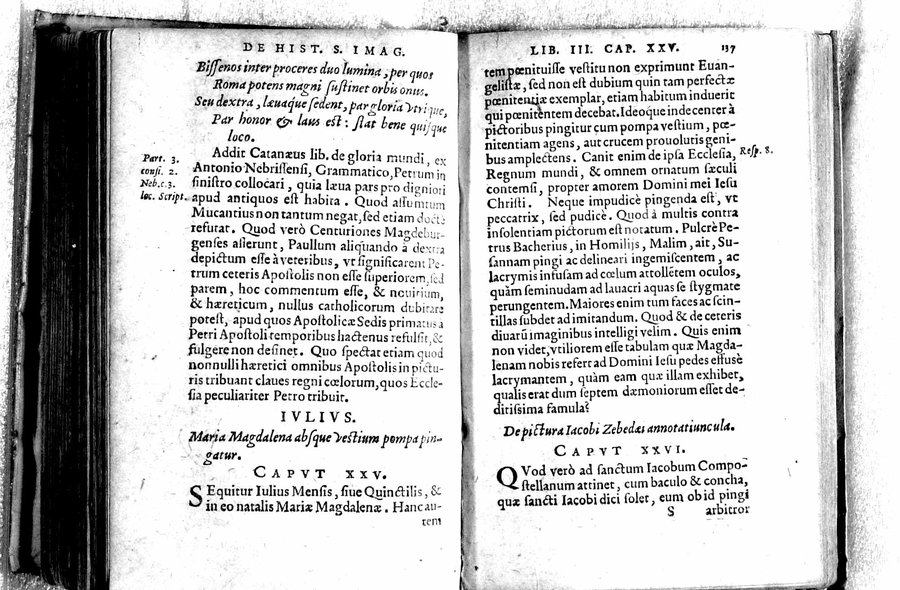 DE HIST. S. IMAG.
Bissenos inter proceres duo lumina, per quos
Roma potens magni sustinet orbis onus.
Seu dextra, læuaque sedent, par gloria vtrique,
Par honor & laus est: stat bene quisque
loco.
Addit Catanæus lib. de gloria mundi, ex
Antonio Nebrissensi, Grammatico, Petrum in
sinistro collocari, quia læua pars pro digniori
apud antiquos est habita. Quod assumtum
Mucantius non tantum negat, sed etiam doctè
refutat. Quod verò Centuriones Magdebur-
genses asserunt, Paullum aliquando à dextra
depictum esse à veteribus, vt significarent Pe-
trum ceteris Apostolis non esse superiorem, sed
parem, hoc commentum esse, & nouitium,
& hæreticum, nullus catholicorum dubitare
potest, apud quos Apostolicæ Sedis primatus a
Petri Apostoli temporibus hactenus refulsit, &
fulgere non desinet. Quo spectat etiam quod
nonnulli hæretici omnibus Apostolis in pictu-
ris tribuant claues regni cœlorum, quos Eccle-
sia peculiariter Petro tribuit.
Part. 3.
consi. 2.
Neb. c. 3.
loc. Script.
IVLIVS.
Maria Magdalena absque vestium pompa pin-
gatur.
CAPVT XXV.
SEquitur Iulius Mensis, siue Quinctilis, &
in eo natalis Mariæ Magdalenæ. Hanc au-
tem
LIB. III. CAP. XXV. 137
tem pœnituisse vestitu non exprimunt Euan-
gelistæ, sed non est dubium quin tam perfectæ
pœnitentiæ exemplar, etiam habitum induerit
qui pœnitentem decebat. Ideoque indecenter à
pictoribus pingitur cum pompa vestium, pœ-
nitentiam agens, aut crucem prouolutis geni-
bus amplectens. Canit enim de ipsa Ecclesia,
Regnum mundi, & omnem ornatum sæculi
contemsi, propter amorem Domini mei Iesu
Christi. Neque impudicè pingenda est, vt
peccatrix, sed pudicè. Quod à multis contra
insolentiam pictorum est notatum. Pulcrè Pe-
trus Bacherius, in Homilijs, Malim, ait, Su-
sannam pingi ac delineari ingemiscentem, ac
lacrymis infusam ad cœlum attollētem oculos,
quàm seminudam ad lauacri aquas se stygmate
perungentem. Maiores enim tum faces ac scin-
tillas subdet ad imitandum. Quod & de ceteris
diuarū imaginibus intelligi velim. Quis enim
non videt, vtiliorem esse tabulam quæ Magda-
lenam nobis refert ad Domini Iesu pedes effusè
lacrymantem, quàm eam quæ illam exhibet,
qualis erat dum septem dæmoniorum esset de-
ditissima famula?
Resp. 8.
De pictura Iacobi Zebedæi annotatiuncula.
CAPVT XXVI.
QVod verò ad sanctum Iacobum Compo-
stellanum attinet, cum baculo & concha,
quæ sancti Iacobi dici solet, eum ob id pingi
S arbitror